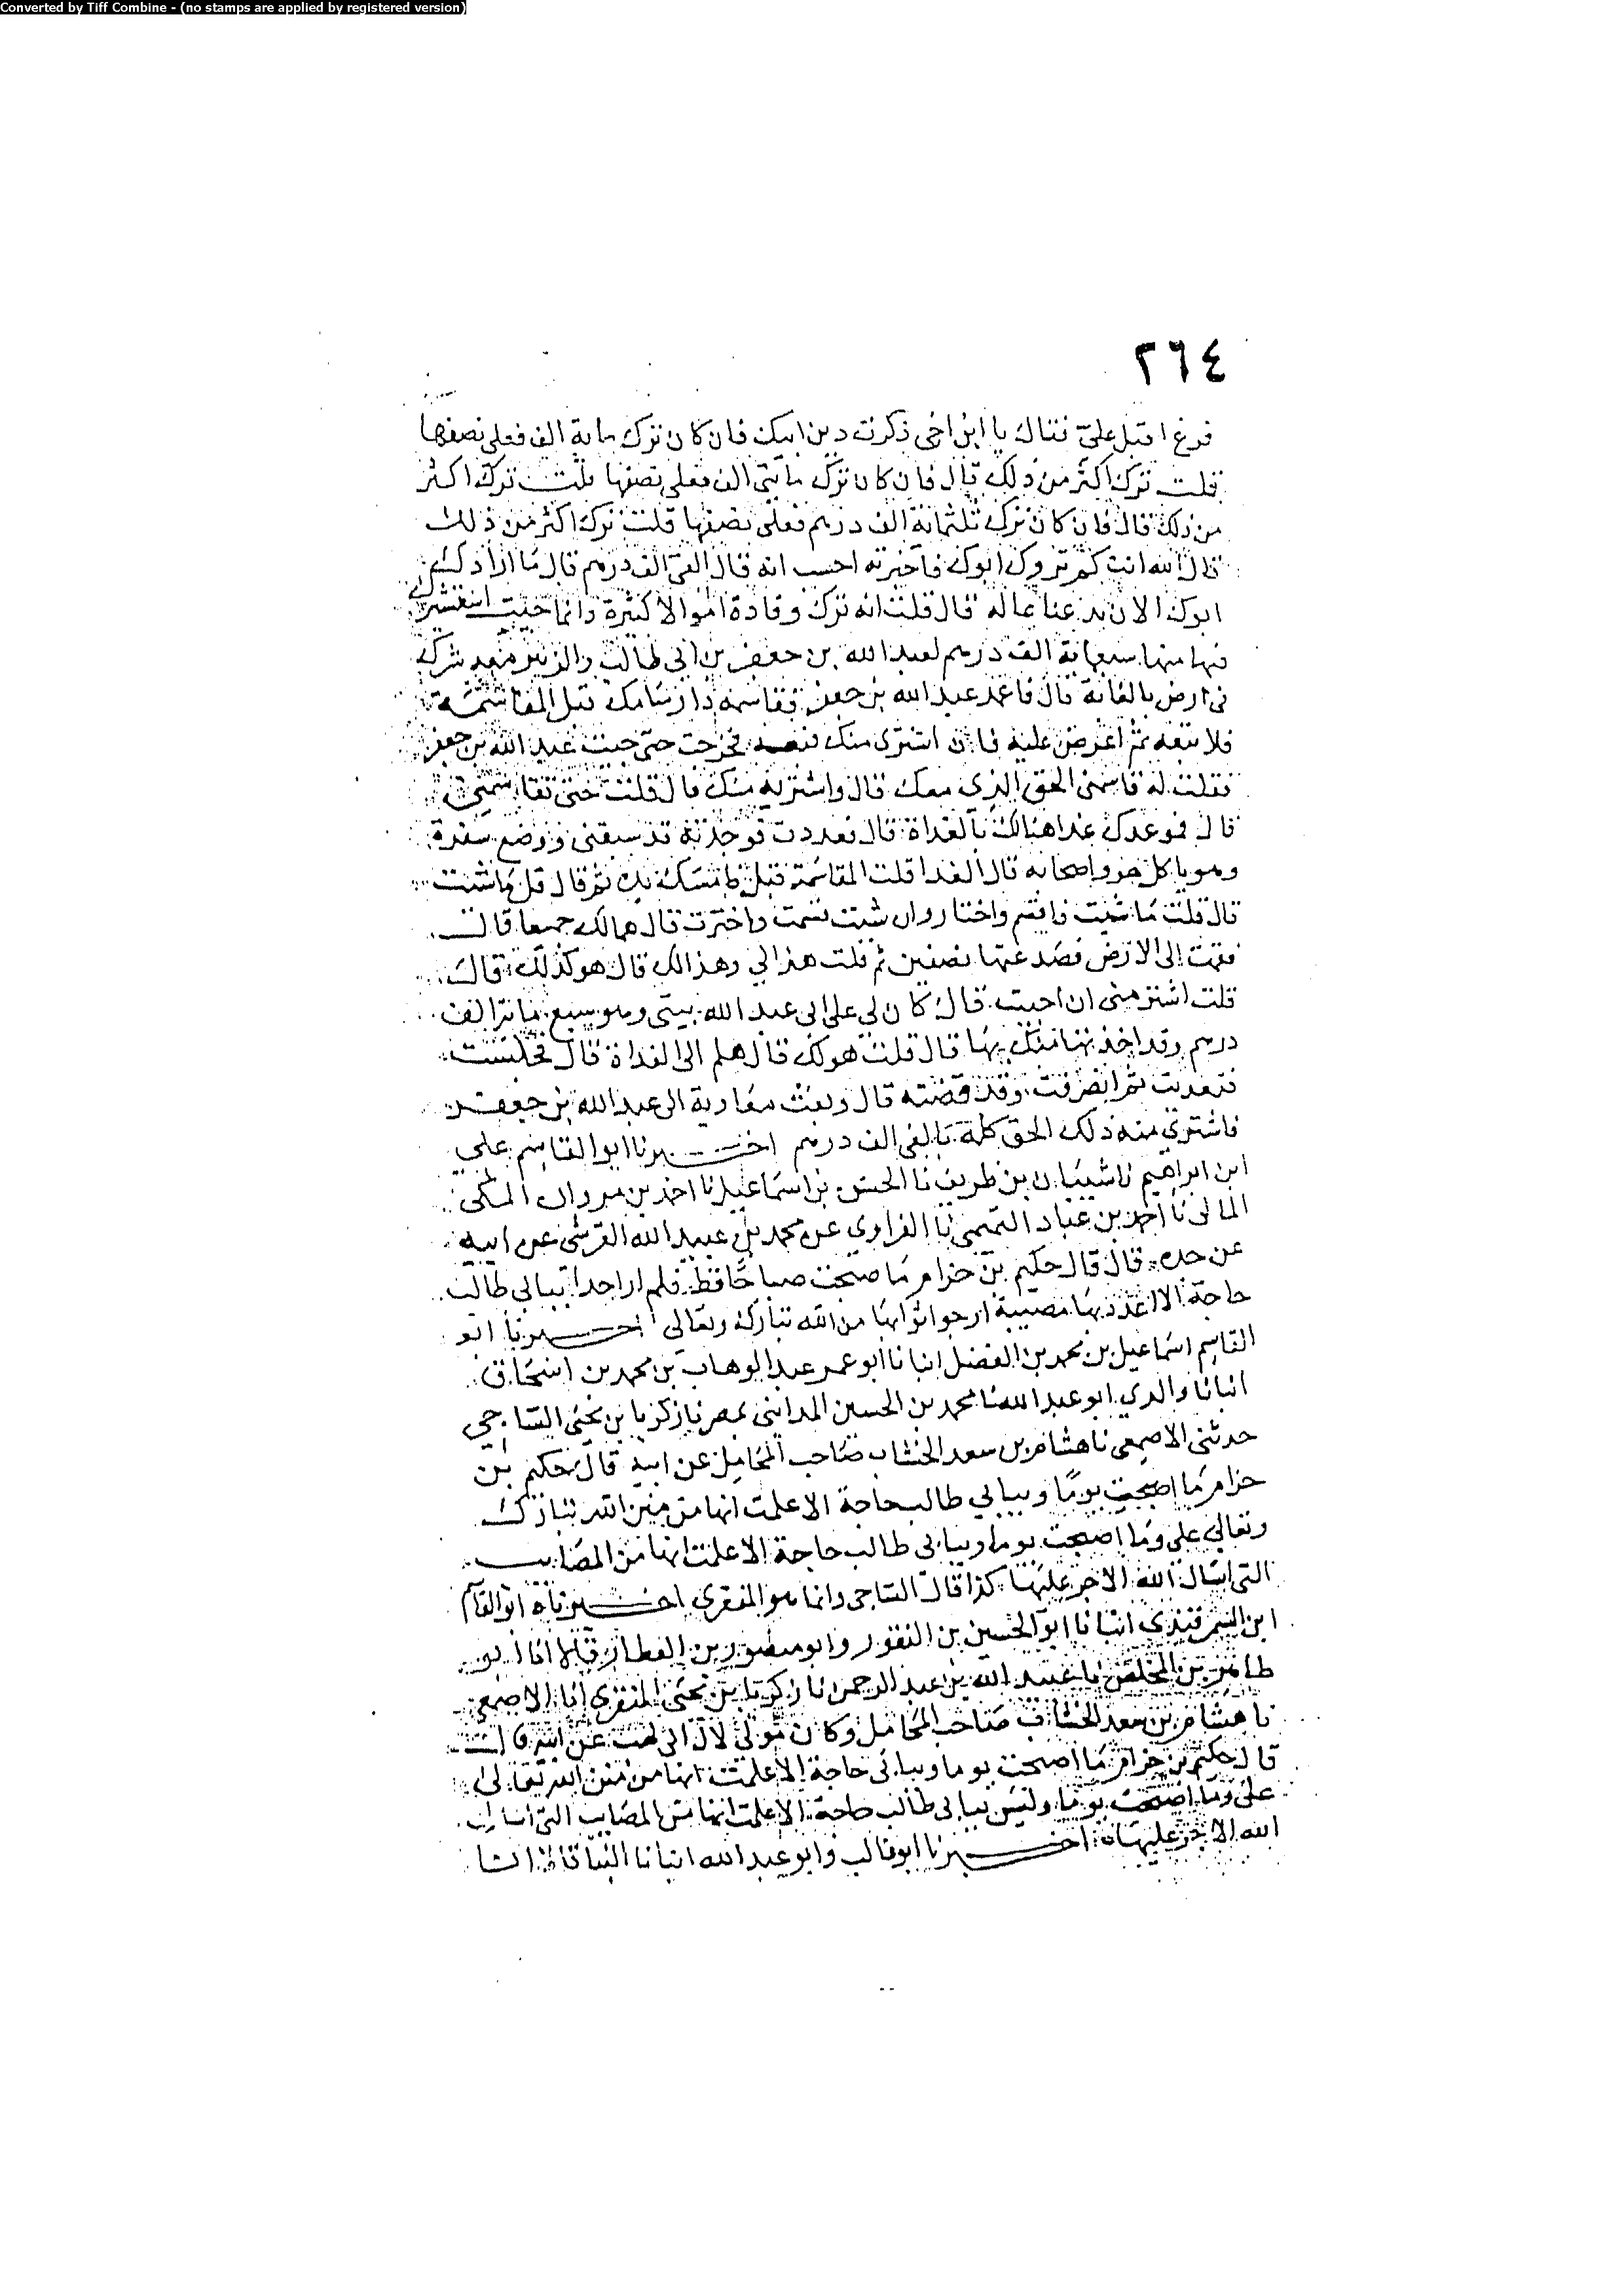 Converted by Tiff Combine - (no stamps are applied by registered version)
٢٦٤
فرغ اقبل علي فقال يا ابن اخي ذكرت دين ابيك فان كان ترك ماية الف فعلي نصفها
قلت ترك اكثر من ذلك قال فان كان ترك مايتي الف فعلي نصفها قلت ترك اكثر
من ذلك قال فان كان ترك ثلثماية الف درهم فعلي نصفها قلت ترك اكثر من ذلك
قال لله انت كم ترك ابوك فاخبرته احسب انه قال الفي الف درهم قال ما اراد
ابوك الا ان يدعنا عالة قال قلت انه ترك وفا دة اموالا كثيرة وانما جيت استشيرك
فيها منها سبعماية الف درهم لعبد الله بن جعفر بن ابي طالب وللزبير معه شرك
في ارض بالغابة قال فاعمد عبد الله بن جعفر فقاسمه وان سامك قبل المقاسمة
فلا تبعه ثم اعرض عليه فان اشترى منك فبعه فخرجت حتى جيت عبد الله بن جعفر
فقلت له قاسمني الحق الذي معك قال واشتريه منك قال قلت حتى تقاسمني
قال فموعدك غدا هنالك بالغداة قال فغدوت فوجدته قد سبقني ووضع سفرة
وهو ياكل هو واصحابه قال الغدا قلت المقاسمة قبل فامسك يده ثم قال قل ما شيت
قال قلت ما شيت فاقسم واختار وان شيت قسمت واخترت قال هما لك جميعا قال
فقمت الى الارض فصدعتها نصفين ثم قلت هذا لي وهذا لك قال هو كذلك قال
قلت اشتر مني ان احببت قال كان لي على ابي عبد الله شي وهو سبع ماية الف
درهم وقد اخذتها منك بها قال قلت هو لك قال هلم الى الغداة قال فجلست
فتغديت ثم انصرفت وقد قضيته قال وبعث معاوية الى عبد الله بن جعفر
فاشترى منه ذلك الحق كله بالفي الف درهم اخبرنا ابو القاسم علي
ابن ابراهيم نا شيبان بن ظريف نا الحسن بن اسماعيل نا احمد بن مروان المكي
المالكي نا احمد بن عباد التميمي نا الفراوي عن محمد بن عبيد الله القرشي عن ابيه
عن جده قال قال حكيم بن حزام ما صبحت صباحا قط فلم ار احدا ببابي طالب
حاجة الا اعددتها مصيبة ارجو ثوابها من الله تبارك وتعالى اخبرنا ابو
القاسم اسماعيل بن محمد بن الفضل انبانا ابو عمر عبد الوهاب بن محمد بن اسحاق
انبانا والدي ابو عبد الله نا محمد بن الحسين المدايني بمصر نا زكريا بن يحيى الساجي
حدثني الاصمعي نا هشام بن سعد الخشاب صاحب المحامل عن ابيه قال حكيم بن
حزام ما اصبحت يوما وببابي طالب حاجة الا علمت انها من منن الله تبارك
وتعالى علي وما اصبحت يوما وببابي طالب حاجة الا علمت انها من المصايب
التي اسال الله الاجر عليها كذا قال الساجي وانما هو المنقري اخبرناه ابو القاسم
ابن السمرقندي انبانا ابو الحسين بن النقور وابو منصور بن العطار قالا انا ابو
طاهر بن المخلص نا عبيد الله بن عبد الرحمن نا زكريا بن يحيى المنقري نا الاصمعي
نا هشام بن سعد الخشاب صاحب المحامل وكان مولى لال ابي لهب عن ابيه قال
قال حكيم بن حزام ما اصبحت يوما وببابي حاجة الا علمت انها من منن الله تعالى
علي وما اصبحت يوما وليس ببابي طالب حاجة الا علمت انها من المصايب التي اسال
الله الاجر عليها اخبرنا ابو غالب وابو عبد الله انبانا البنا قالا انبا